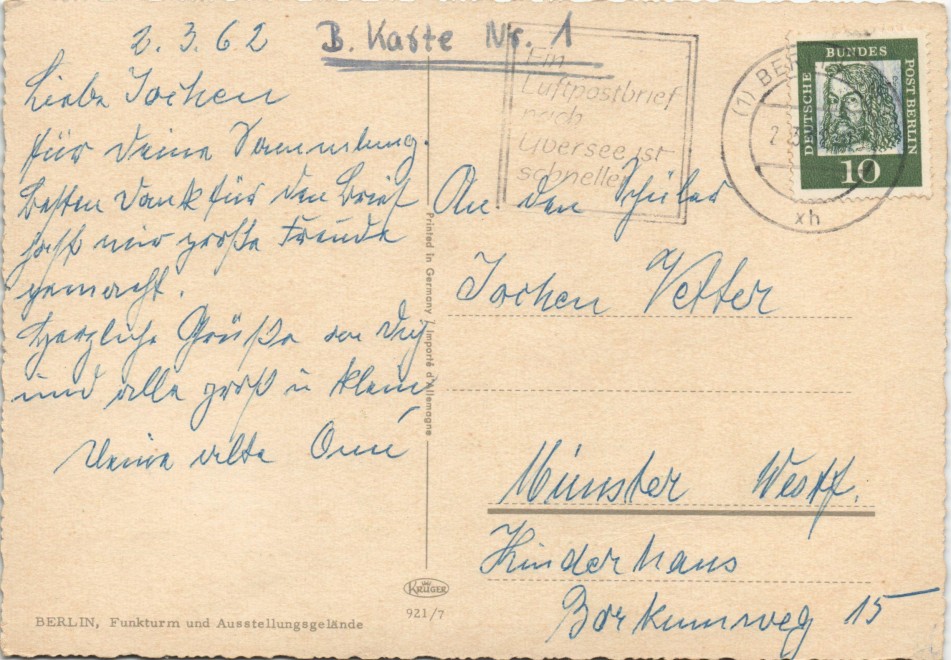 2.3.62
B. Karte Nr. 1
Liebe Jochen
für Deine Sammlung.
Besten Dank für den Brief
hast mir große Freude
gemacht.
Herzliche Grüße an Dich
und alle groß u klein
Deine alte Omi
Ein
Luftpostbrief
nach
Übersee ist
schneller
(1) BERLIN
xh
DEUTSCHE
BUNDES
POST BERLIN
10
An den Schüler
Jochen Vetter
Münster Westf.
Kinderhaus
Borkumweg 15
Printed in Germany / Importé d'Allemagne
KRÜGER
921/7
BERLIN, Funkturm und Ausstellungsgelände